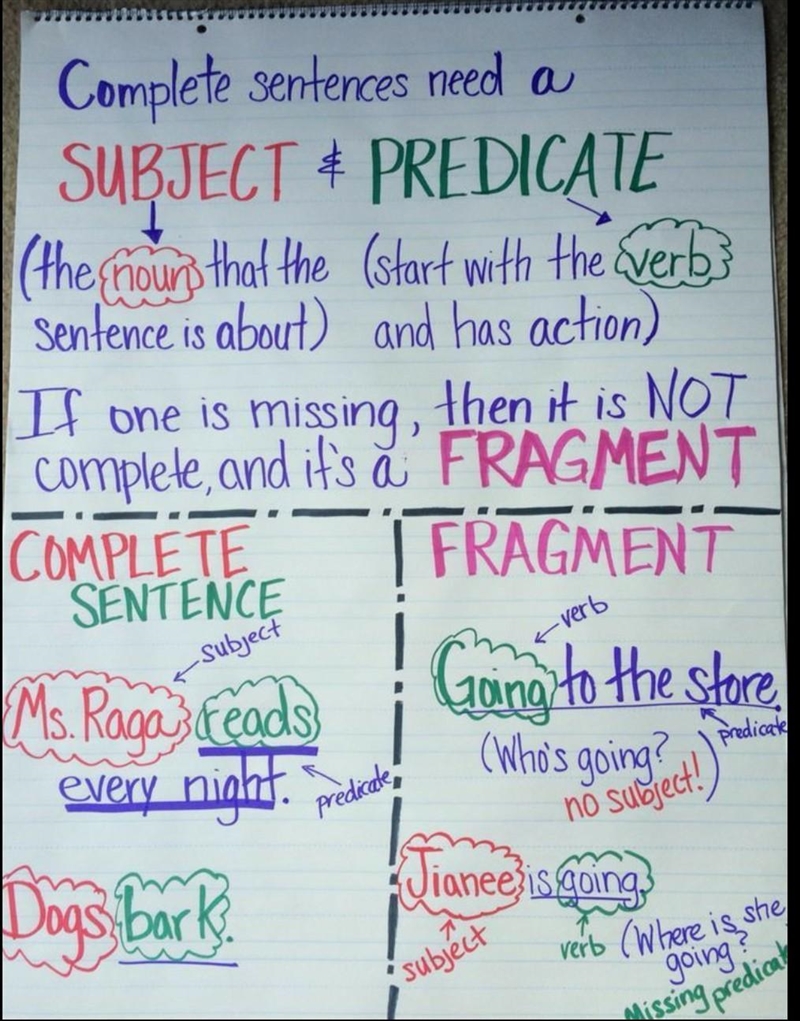 Complete sentences need a
SUBJECT & PREDICATE
(the noun that the
sentence is about)
(start with the verb
and has action)
If one is missing, then it is NOT
complete, and it's a FRAGMENT
COMPLETE
SENTENCE
subject
Ms. Raga reads
every night.
predicate
Dogs bark.
FRAGMENT
verb
Going to the store.
predicate
(Who's going?
no subject!)
Jianee is going.
subject
verb
(Where is she
going?
Missing predicat